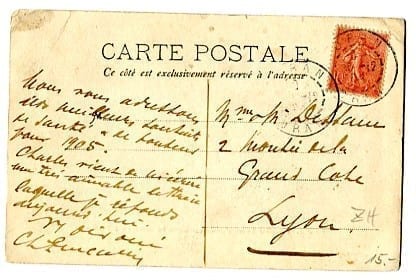 CARTE POSTALE
Ce côté est exclusivement réservé à l'adresse
Nous vous adressons
nos meilleurs souhaits
de santé & de bonheur
pour 1905.
Charles vient de
une très aimable lettre
laquelle je réponds
aujourd'hui.
Mme
2 Montée de la
Grand Côte
Lyon
ZH
15.-